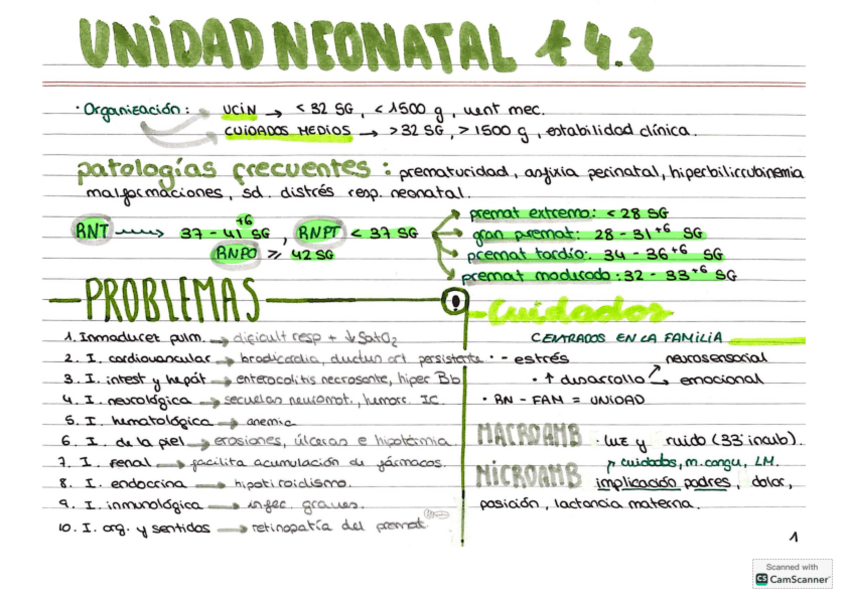 UNIDAD NEONATAL t 4.2
· Organización: UCIN → < 32 SG, < 1500 g, vent mec.
CUIDADOS MEDIOS → > 32 SG, > 1500 g, estabilidad clínica.
patologías frecuentes: prematuridad, asfixia perinatal, hiperbilirrubinemia
malformaciones, sd. distrés resp. neonatal.
RNT → 37 - 41⁺⁶ SG, RNPT < 37 SG
RNPO ≥ 42 SG
premat extremo: < 28 SG
gran premat: 28 - 31⁺⁶ SG
premat tardío: 34 - 36⁺⁶ SG
premat moderado: 32 - 33⁺⁶ SG
PROBLEMAS
1. Inmadurez pulm. → dificult resp + ↓ SatO₂
2. I. cardiovascular → bradicardia, ductus art persistente
3. I. intest y hepát → enterocolitis necrosante, hiper Bb
4. I. neurológica → secuelas neuromot., hemorr. IC.
5. I. hematológica → anemia
6. I. de la piel → erosiones, úlceras e hipotermia.
7. I. renal → facilita acumulación de fármacos.
8. I. endocrina → hipotiroidismo.
9. I. inmunológica → infec. graves.
10. I. org. y sentidos → retinopatía del premat
Cuidados
CENTRADOS EN LA FAMILIA
· - estrés
· ↑ desarrollo
neurosensorial
emocional
· RN - FAM = UNIDAD
MACROAMB · luz y ruido (33' incub).
cuidados, m. cangu, LM.
MICROAMB implicación padres, dolor,
posición, lactancia materna.
1
Scanned with
CS CamScanner